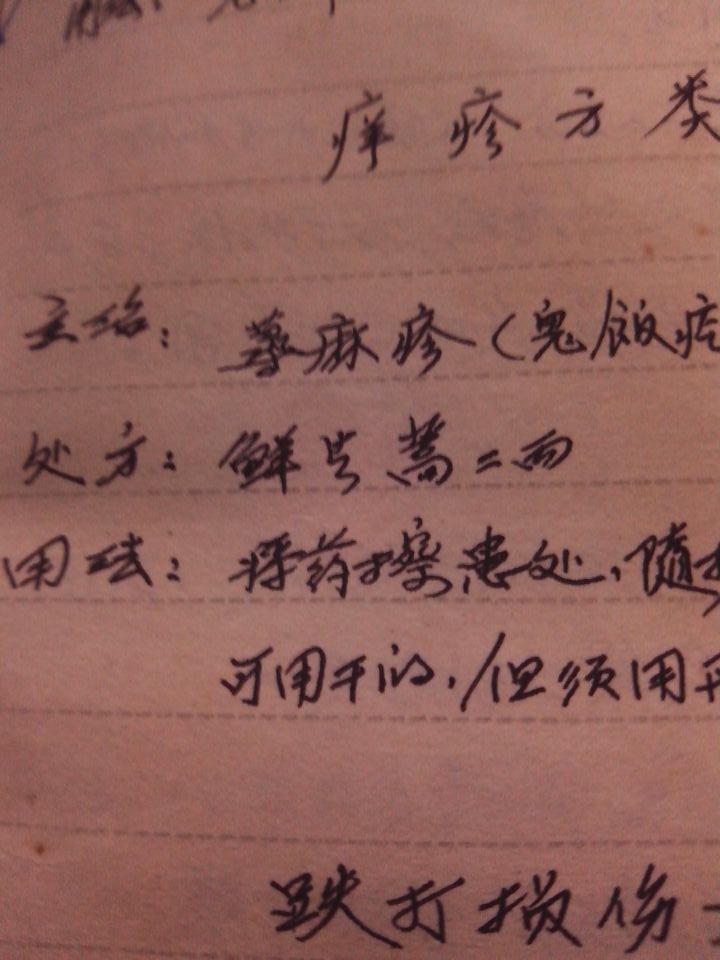 痒疹方类
主治：荨麻疹（鬼饭疙
处方：鲜青蒿二两
用法：将药擦患处，随
可用干的，但须用开
跌打损伤